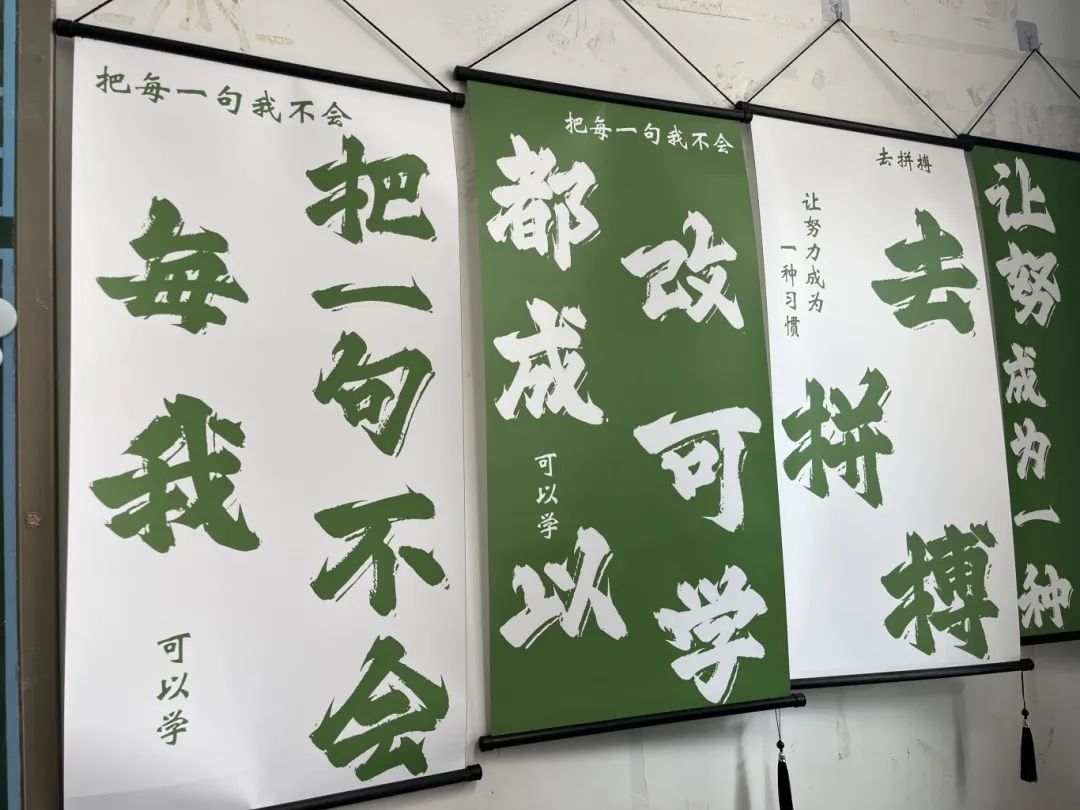 把每一句我不会
把每一句我不会
可以学
把每一句我不会
都改成可以学
可以学
去拼搏
让努力成为
一种习惯
去拼搏
让努成为一种